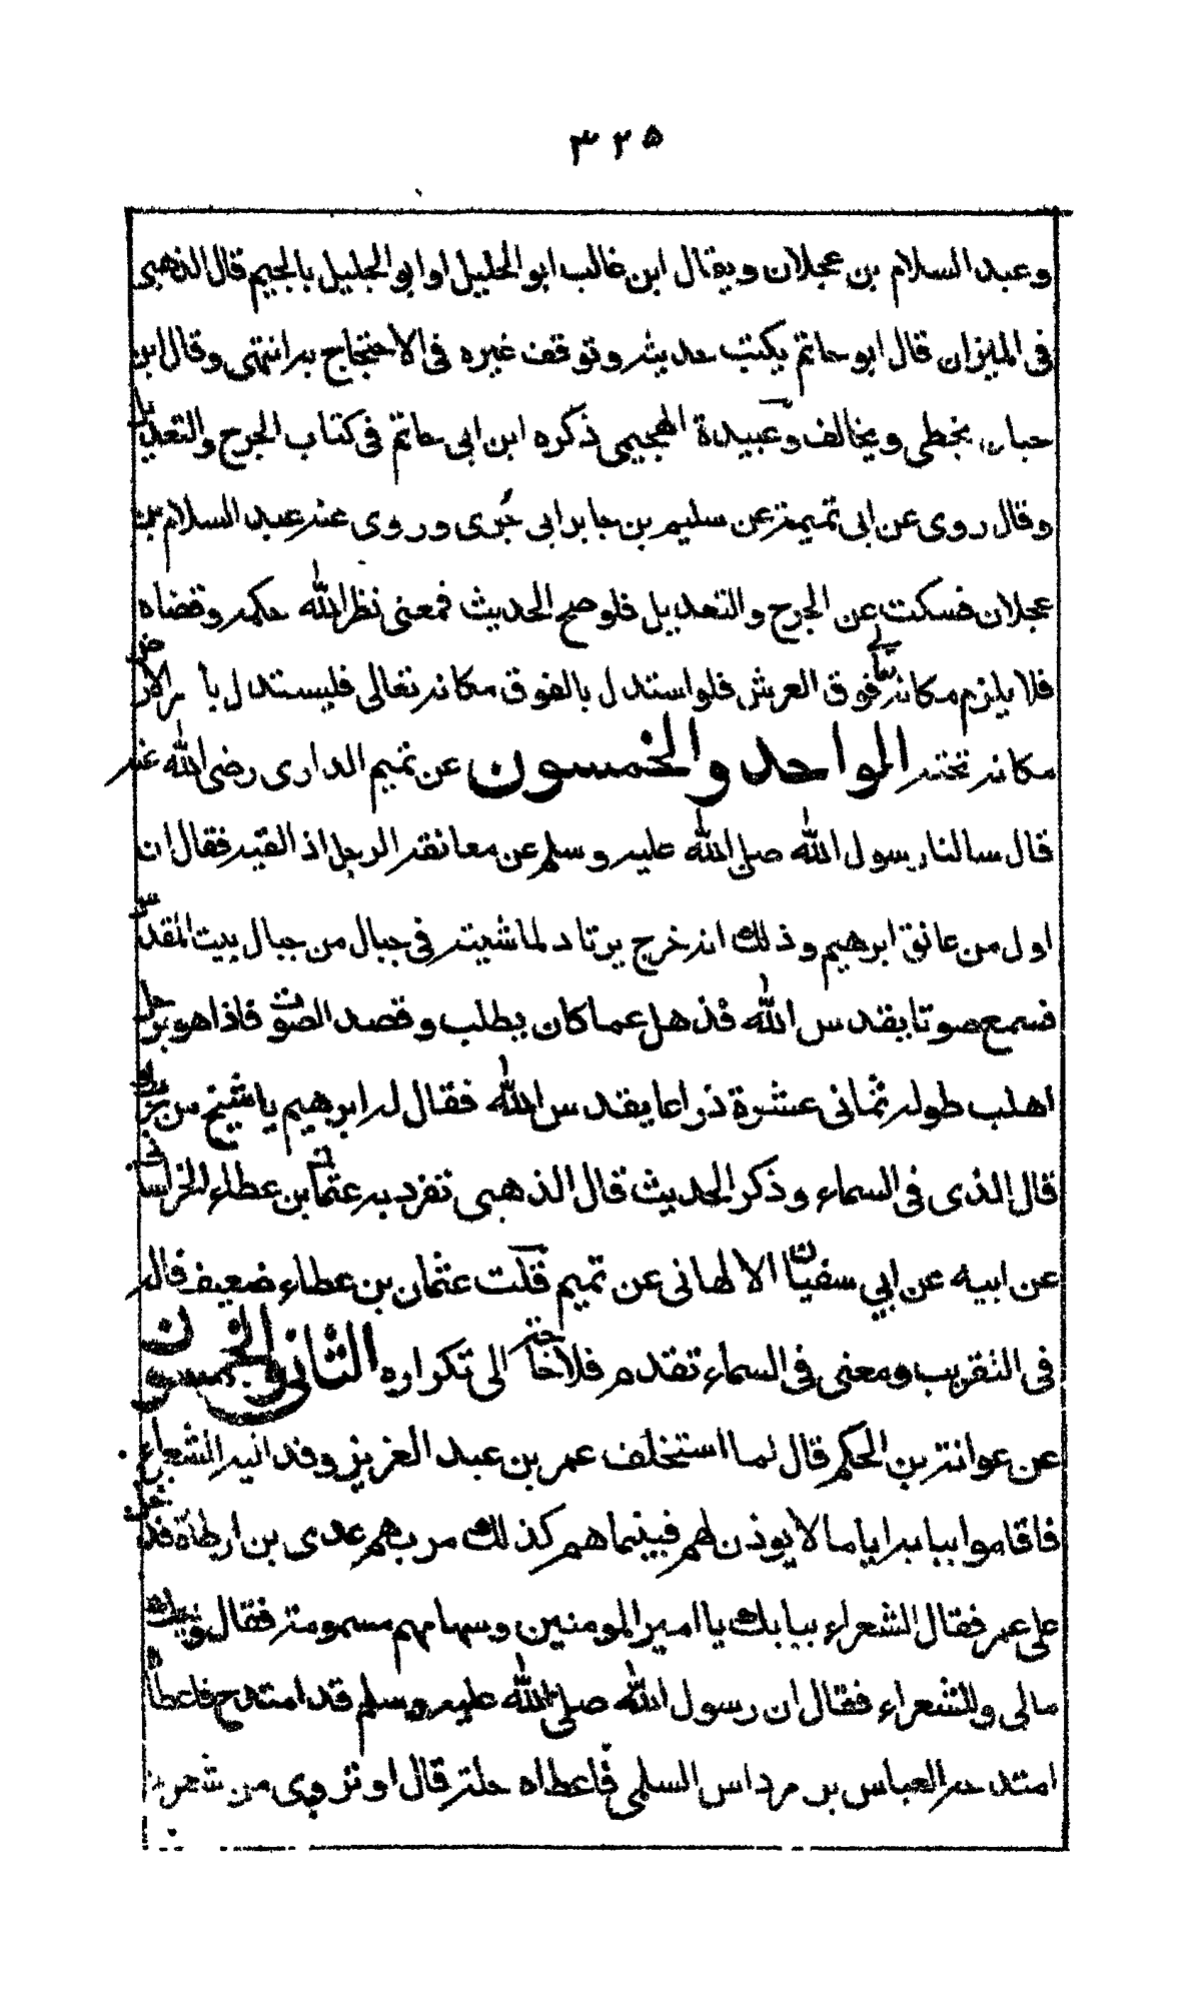 ٣٢٥
وعبد السلام بن عجلان ويقال ابن غالب ابو الخليل او ابو الجليل بالجيم قال الذهبى
فى الميزان قال ابو حاتم يكتب حديثه وتوقف غيره فى الاحتجاج به انتهى وقال ابن
حبان يخطى ويخالف وعبيدة الهجيمى ذكره ابن ابى حاتم فى كتاب الجرح والتعديل
وقال روى عن ابى تميمة عن سليم بن جابر ابى جُرى وروى عنه عبد السلام بن
عجلان فسكت عن الجرح والتعديل فلو صح الحديث فمعنى نظر الله حكمه وقضاه
فلا يلزم مكانه تعالى فوق العرش فلو استدل بالفوق مكانه تعالى فليستدل با الارض
مكانه تحته الواحد والخمسون عن تميم الدارى رضى الله عنه
قال سالنا رسول الله صلى الله عليه وسلم عن معانقة الرجل اذا لقيه فقال ان
اول من عانق ابرهيم وذلك انه خرج يرتاد لماشيته فى جبال من جبال بيت المقدس
فسمع صوتا يقدس الله فذهل عما كان يطلب وقصد الصوت فاذا هو برجل
اهلب طوله ثمانى عشرة ذراعا يقدس الله فقال له ابرهيم يا شيخ من ربك
قال الذى فى السماء وذكر الحديث قال الذهبى تفرد به عثمان بن عطاء الخراسانى
عن ابيه عن ابي سفيان الالهانى عن تميم قلت عثمان بن عطاء ضعيف قاله
فى التقريب ومعنى فى السماء تقدم فلا حاجة الى تكراره الثانى والخمسون
عن عوانة بن الحكم قال لما استخلف عمر بن عبد العزيز وفد اليه الشعراء
فاقاموا ببابه اياما لا يوذن لهم فبينما هم كذلك مر بهم عدى بن ارطاة فدخل
على عمر فقال الشعراء ببابك يا امير المومنين وسهامهم مسمومة فقال ويحك
مالى وللشعراء فقال ان رسول الله صلى الله عليه وسلم قد امتدح فاعطا
امتدحه العباس بن مرداس السلمى فاعطاه حلة قال او تروى من شعره